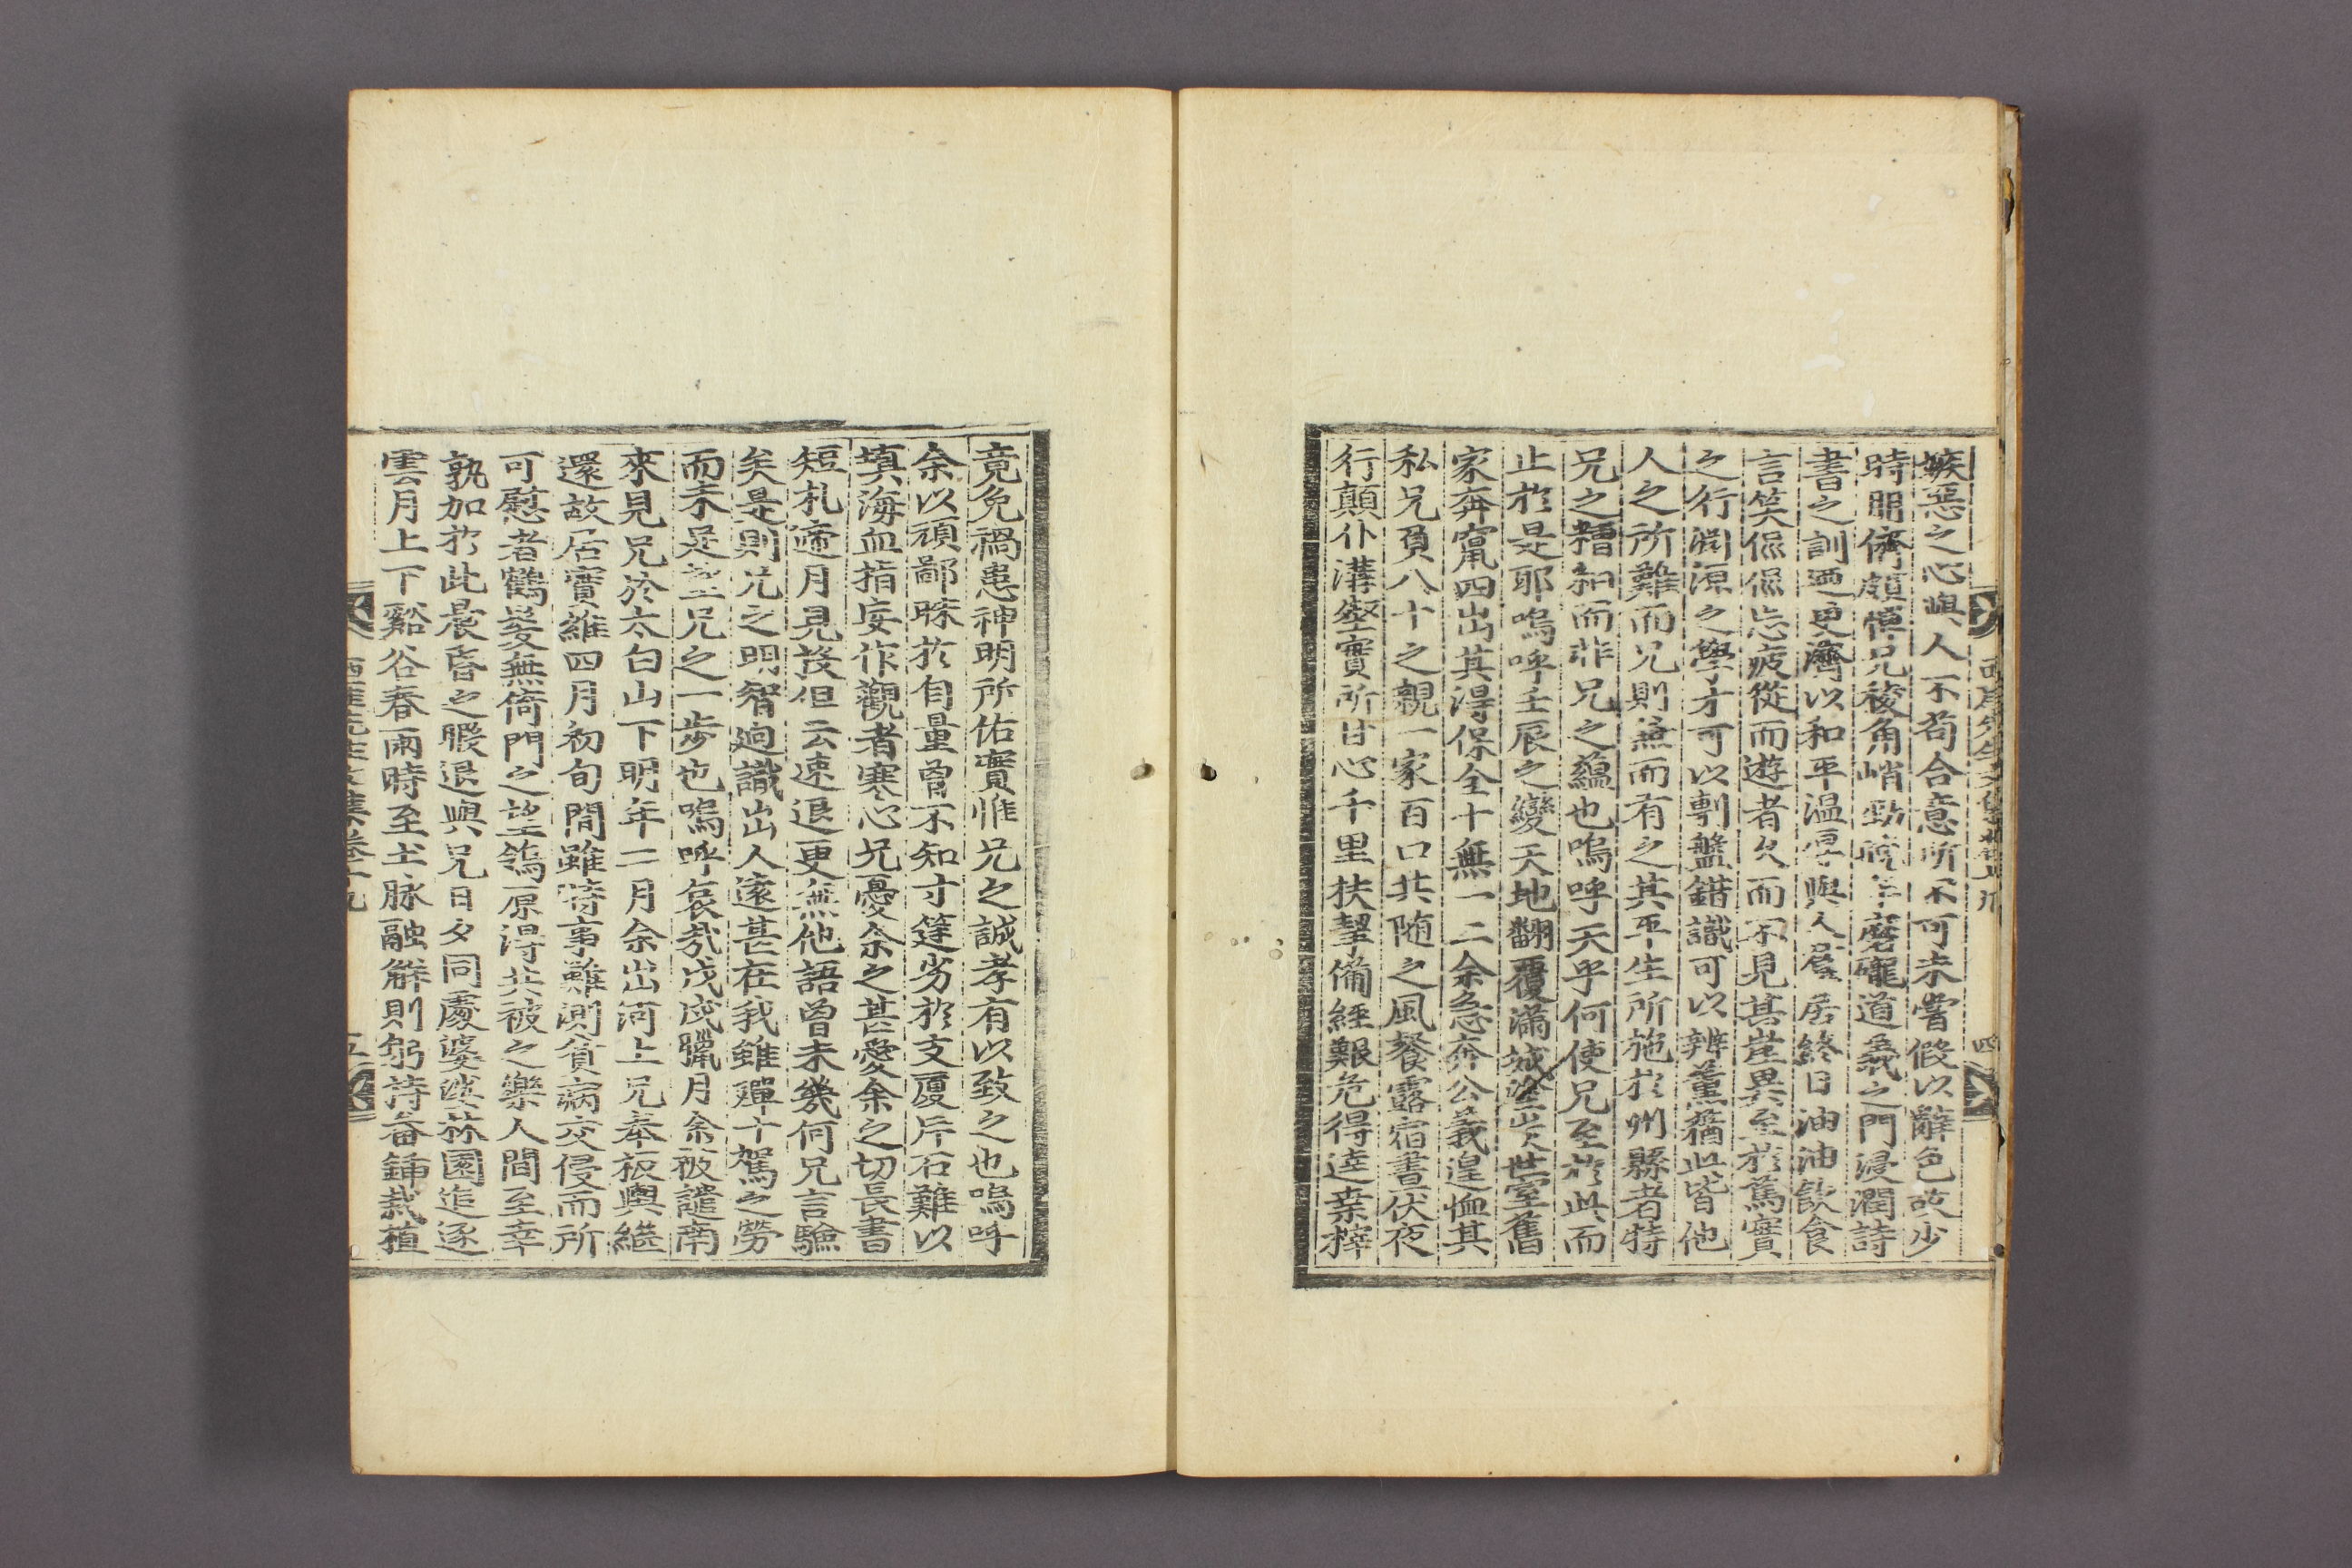 嫉惡之心與人不苟合意所不可未嘗假以辭色故少
時朋儕頗憚兄稜角峭勁晩年磨礲道義之門浸潤詩
書之訓迺更濟以和平温厚與人居居終日油油飮食
言笑㒍㒍忘疲從而遊者久而不見其崖異至於篤實
之行淵源之學才可以剸盤錯識可以辨薰蕕此皆他
人之所難而兄則兼而有之其平生所施於州縣者特
兄之糟粕而非兄之蘊也嗚呼天乎何使兄至於此而
止於是耶嗚呼壬辰之變天地翻覆滿城世室舊
家奔竄四出其得保全十無一二余急奔公義遑恤其
私兄負八十之親一家百口共随之風餐露宿晝伏夜
行顛仆溝壑實所甘心千里扶挈備經艱危得達桒梓
西厓先生文集卷十九
四
竟免禍患神明所佑實惟兄之誠孝有以致之也嗚呼
余以頑鄙昧於自量曾不知寸筳劣於支厦斥石難以
填海血指妄作觀者寒心兄憂余之甚愛余之切長書
短札逐月見投但云速退更無他語曾未幾何兄言驗
矣是則兄之明智逈識出人遠甚在我雖殫十駕之勞
而未足並兄之一步也嗚呼哀哉戊戌臘月余被譴南
來見兄於太白山下明年二月余出河上兄奉板輿継
還故居實維四月初旬間雖時事難測貧病交侵而所
可慰者鶴髮無倚門之望鴒原得共被之樂人間至幸
孰加於此晨昏之暇退與兄日夕同處婆娑林園追逐
雲月上下谿谷春雨時至土脉融觧則躬持畚鍤栽植
西厓先生文集卷十九
五